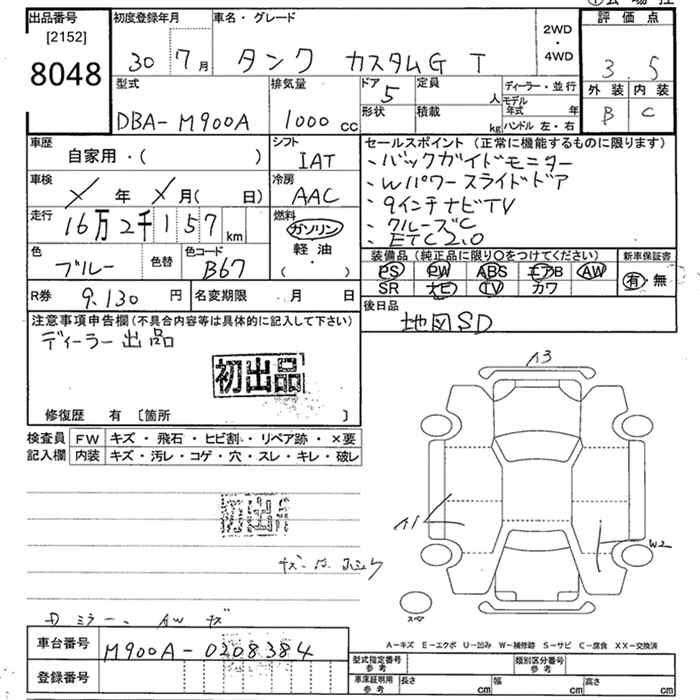 出品番号 初度登録年月 車名・グレード 評価点
[2152]
8048
30 7月 タンク カスタムG T
2WD・4WD
3 . 5
型式 排気量 ドア 定員 ディーラー・並行 外装 内装
DBA-M900A 1000cc 5 人 モデル年式 年
形状 積載 kg ハンドル 左・右 B C
車歴 シフト セールスポイント (正常に機能するものに限ります)
自家用・( ) IAT ・バックガイドモニター
車検 冷房 ・Wパワースライドドア
年 月( 日) AAC ・9インチナビTV
走行 燃料 ・クルーズC
16万2千157km ガソリン ・ETC2.0
軽油
・( )
色 色替 色コード
ブルー B67
装備品(純正品に限り○をつけてください) 新車保証書
PS PW ABS エアB AW 有・無
SR ナビ TV カワ
R券 9.130円 名変期限 月 日
後日品
地図SD
注意事項申告欄(不具合内容等は具体的に記入して下さい)
ディーラー出品
初出品
修復歴 有 〔箇所 〕
検査員 FW キズ・飛石・ヒビ割・リペア跡・×要
記入欄 内装 キズ・汚レ・コゲ・穴・スレ・キレ・破レ
初出品
A3
A1
W2
スペア
A-キズ E-エクボ U-凹み W-補修跡 S-サビ C-腐食 XX-交換済
車台番号 M900A-0208384
登録番号
型式指定番号 参考 類別区分番号 参考
車庫証明用 参考 長さ cm 幅 cm 高さ cm